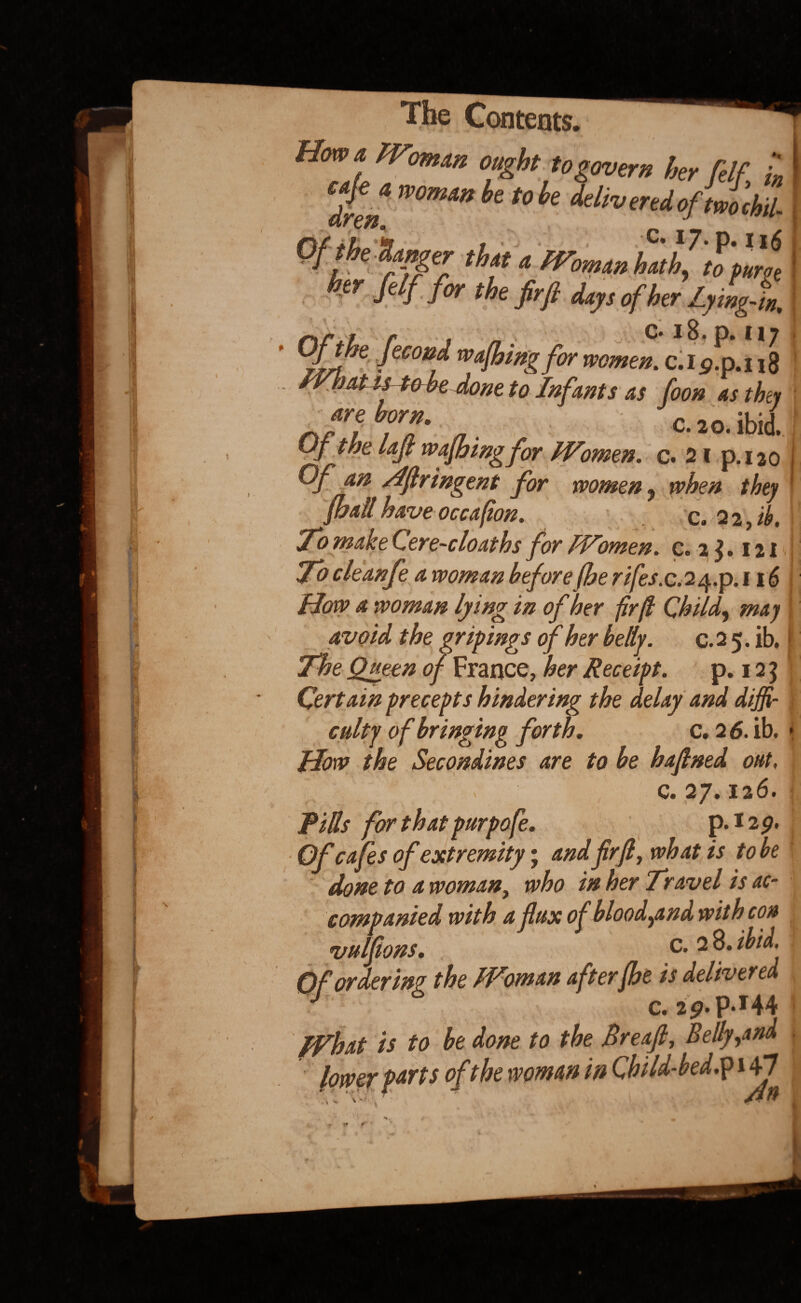 The Contents.
How a Woman ought to govern her ſelf, in
caſe a woman be to be delivered of two chil-
dren. c. 17. p. 116
Of the danger that a Woman hath, to purge
her ſelf for the firſt days of her Lying-in.
c. 18. p. 117
Of the ſecond waſhing for women. c. 19. p. 118
What is to be done to Infants as ſoon as they
are born. c. 20. ibid.
Of the laſt waſhing for Women. c. 21 p. 120
Of an Aſtringent for women, when they
ſhall have occaſion. c. 22, ib.
To make Cere-cloaths for Women. c. 23. 121
To cleanſe a woman before ſhe riſes. c. 24. p. 116
How a woman lying in of her firſt Child, may
avoid the gripings of her belly. c. 25. ib.
The Queen of France, her Receipt. p. 123
Certain precepts hindering the delay and diffi-
culty of bringing forth. c. 26. ib.
How the Secondines are to be haſtned out.
c. 27. 126.
Pills for that purpoſe. p. 129.
Of caſes of extremity; and firſt, what is to be
done to a woman, who in her Travel is ac-
companied with a flux of blood, and with con
vulſions. c. 28. ibid.
Of ordering the Woman after ſhe is delivered
c. 29. p. 144
What is to be done to the Breaſt, Belly, and
lower parts of the woman in Child-bed. p 147
An